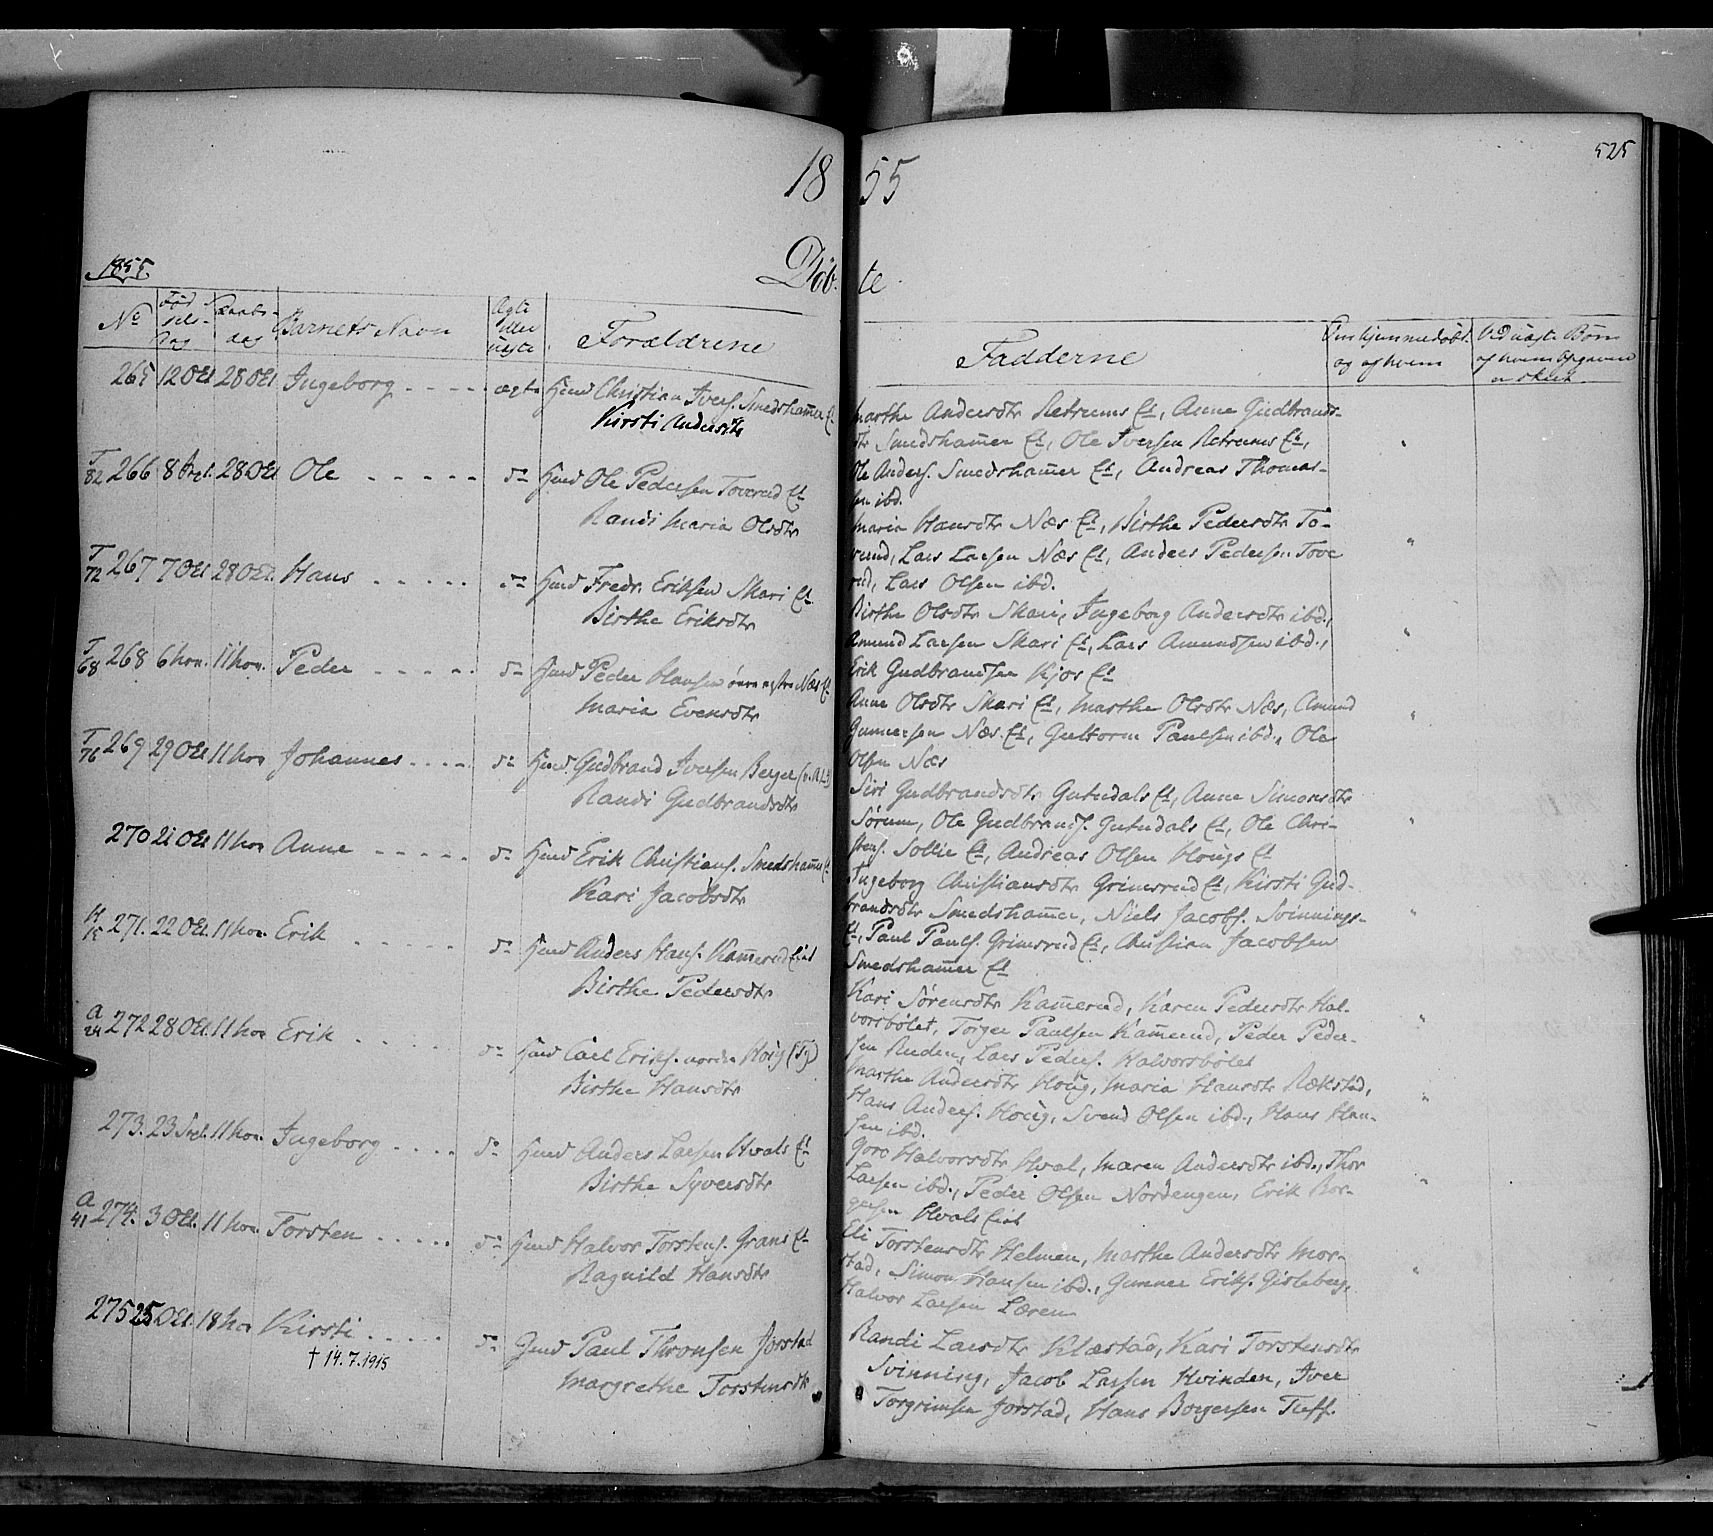 18 55
525
1855.
Döb- te
No Fødselsdag Daabsdag Barnets Navn Ægte eller uægte Forældrene
Fadderne Om hjemmedøbt og af hvem Ved uægte Børn af hvem Opgaven er skeet
265 12 Oct 28 Oct Ingeborg ægte Hmd Christian Ivers. Smedshamer Et
Kirsti Andersdtr
Marthe Andersdtr Retrums Et, Anne Gudbrands-
dtr Smedshamer Et, Ole Iversen Retrums Et,
Ole Anders. Smedshamer Et, Andreas Thomas-
sen ibd.
T 82 266 8 Sept. 28 Oct Ole do Hmd Ole Pedersen Toverud Et
Randi Maria Olsdtr
Maria Hansdtr Næs Et, Birthe Pedersdtr To-
verud, Lars Larsen Næs Et, Anders Pedersen Tove
rud, Lars Olsen ibd.
T 72 267 7 Oct 28 Oct. Hans do Hmd Fredr. Eriksen Skari Et
Birthe Eriksdtr
Birthe Olsdtr Skari, Ingeborg Andersdtr ibd.,
Amund Larsen Skari Et, Lars Amundsen ibd.,
Erik Gudbrandsen Kjos Et
T 68 268 6 Nov. 11 Nov. Peder do Hmd Peder Hansen Næs Et
Maria Evensdtr
Anne Olsdtr Skari Et, Marthe Olsdtr Næs, Amund
Gunnersen Næs Et, Guttorm Paulsen ibd., Ole
Olsen Næs
T 76 269 29 Oct 11 Nov Johannes do Hmd. Gudbrand Iversen Berger
Randi Gudbrandsdtr
Siri Gudbrandsdtr Gutudals Et, Anne Simonsdtr
Sørum, Ole Gudbrands. Gutudals Et, Ole Chri-
stens. Sollie Et, Andreas Olsen Hougs Et
270 21 Oct 11 Nov Anne do Hmd Erik Christians. Smedshamer Et
Kari Jacobsdtr
Ingeborg Christiansdtr Grimsrud Et, Kirsti Gud-
brandsdtr Smedshamer, Niels Jacobs. Svinnings-
Et, Paul Pauls. Grimsrud Et, Christian Jacobsen
Smedshamer Et
271. 22 Oct. 11 Nov. Erik do Hmd Anders Hans. Kamerud Eiet
Birthe Pedersdtr
Kari Sørensdtr Kamerud, Karen Pedersdtr Hal-
vorsbølet, Torger Paulsen Kamerud, Peder Peder-
sen Ruden, Lars Peders. Halvorsbølet
A 24 272 28 Oct. 11 Nov Erik do Hmd Carl Eriks. nordre Houg (Ty)
Birthe Hansdtr
Marthe Andersdtr Houg, Maria Hansdtr Rækstad,
Hans Anders. Houg, Svend Olsen ibd., Hans Han-
sen ibd.
273. 23 Sept. 11 Nov. Ingeborg do Hmd Anders Larsen Hvals Et
Birthe Syversdtr
Goro Halvorsdtr Hval, Maren Andersdtr ibd., Thor
Larsen ibd., Peder Olsen Nordengen, Erik Bor-
gersen Hvals Eiet
A 41 274. 3 Oct. 11 Nov. Torsten do Hmd Halvor Torstens. Grans Et
Ragnild Hansdtr
Eli Torstensdtr Helmen, Marthe Andersdtr Mor-
stad, Simon Hansen ibd., Gunner Eriks. Gisleberg,
Halvor Larsen Læren
275 25 Oct. 18 Nov Kirsti do Gmd Paul Thronsen Jorstad
† 14.7.1915
Margrethe Torstensdtr
Randi Larsdtr Klæstad, Kari Torstensdtr
Svinning, Jacob Larsen Hvinden, Iver
Torgrimsen Jorstad, Hans Borgersen Tuff.